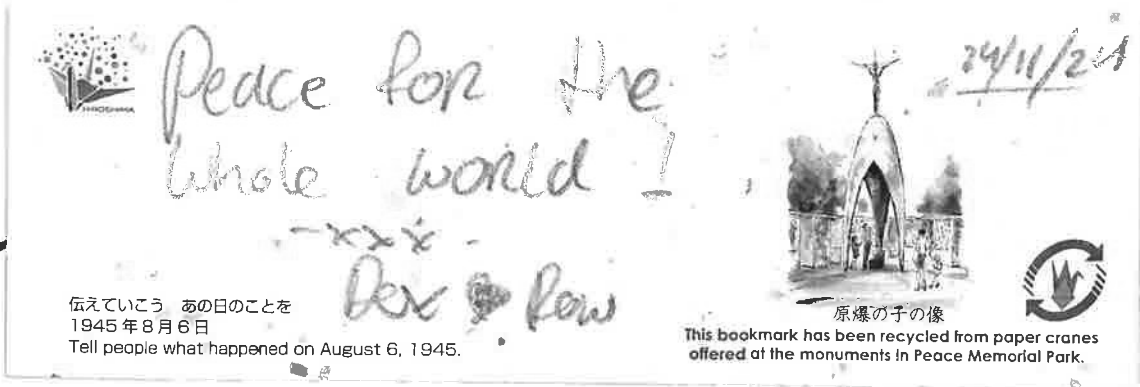 HIROSHIMA
Peace for the
whole world !
-xxx-
Dex Rew
伝えていこう あの日のことを
1945年8月6日
Tell people what happened on August 6, 1945.
24/11/24
原爆の子の像
This bookmark has been recycled from paper cranes
offered at the monuments in Peace Memorial Park.